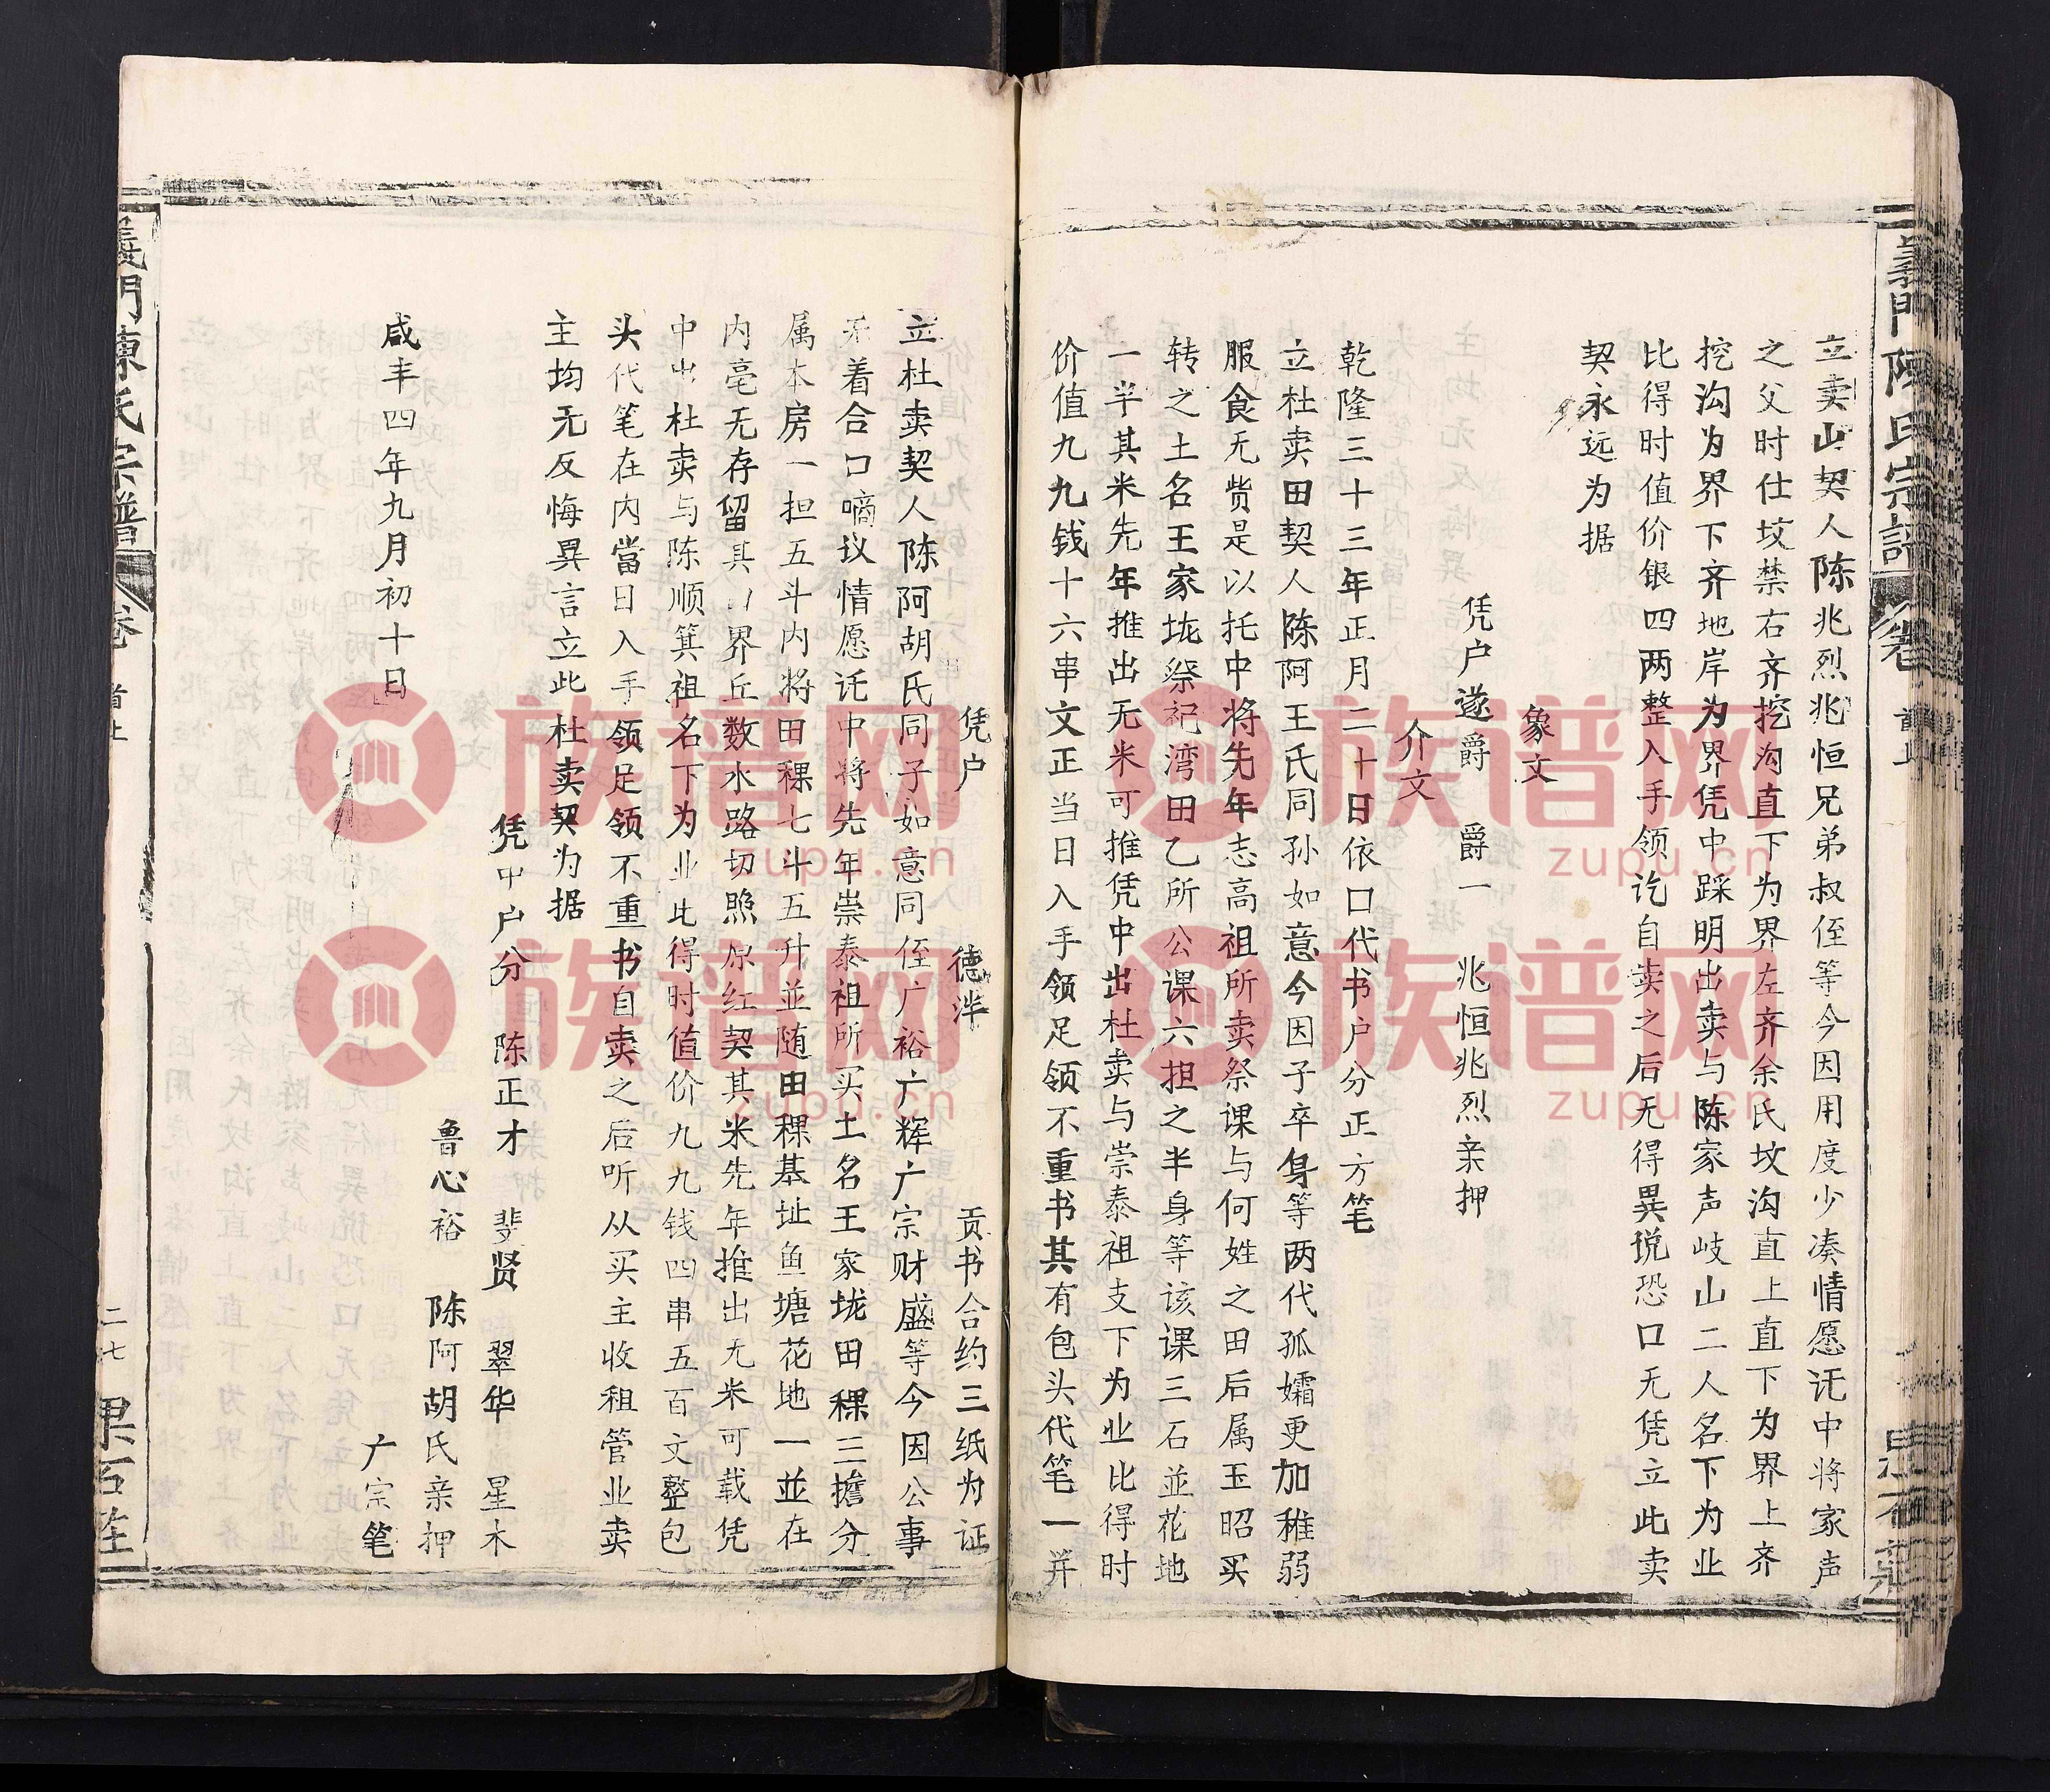 義門陳氏宗譜 卷 首上
立卖山契人陈兆烈兆恒兄弟叔侄等今因用度少凑情愿讬中将家声
之父时仕坟禁右齐挖沟直下为界左齐余氏坟沟直上直下为界上齐
挖沟为界下齐地岸为界凭中踩明出卖与陈家声岐山二人名下为业
比得时值价银四两整入手领讫自卖之后无得異说恐口无凭立此卖
契永远为据
象文
凭户遂爵 爵一 兆恒兆烈亲押
介文
乾隆三十三年正月二十日依口代书户分正方笔
立杜卖田契人陈阿王氏同孙如意今因子卒身等两代孤孀更加稚弱
服食无赀是以托中将先年志高祖所卖祭课与何姓之田后属玉昭买
转之土名王家垅祭祀湾田乙所公课六担之半身等该课三石並花地
一半其米先年推出无米可推凭中出杜卖与崇泰祖支下为业比得时
价值九九钱十六串文正当日入手领足领不重书其有包头代笔一并
凭户 德泮 贡书合约三纸为证
立杜卖契人陈阿胡氏同子如意同侄广裕广辉广宗财盛等今因公事
无着合口嘀议情愿讬中将先年崇泰祖所买土名王家垅田稞三擔分
属本房一担五斗内将田稞七斗五升並随田稞基址鱼塘花地一並在
内毫无存留其口界丘数水路切照原红契其米先年推出无米可载凭
中出杜卖与陈顺箕祖名下为业此得时值价九九钱四串五百文整包
头代笔在内當日入手领足领不重书自卖之后听从买主收租管业卖
主均无反悔異言立此杜卖契为据
凭中户分 陈正才 斐贤 翠华 星木
鲁心裕 陈阿胡氏亲押
咸丰四年九月初十日
广宗笔
義門陳氏宗譜 卷 首上 二七 果石莊
族谱网
zupu.cn
族谱网
zupu.cn
族谱网
zupu.cn
族谱网
zupu.cn